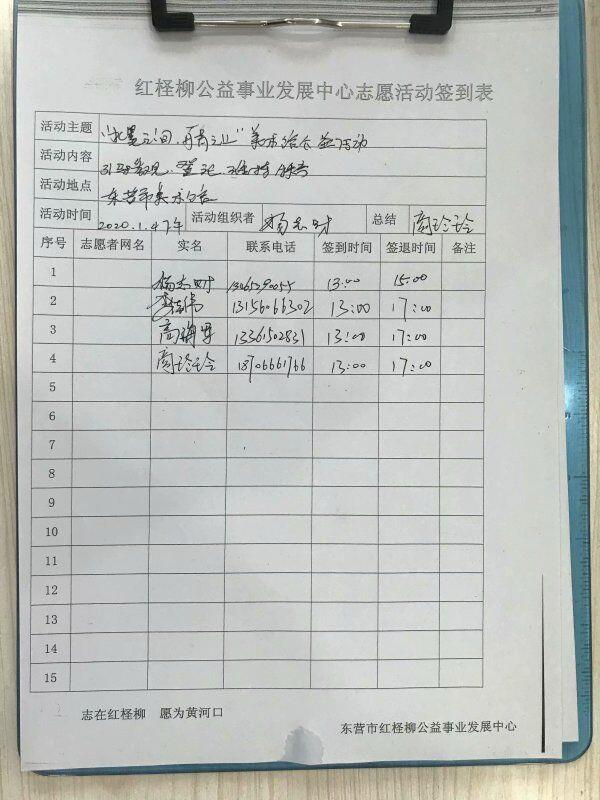 红柽柳公益事业发展中心志愿活动签到表
活动主题 "水墨之间,
活动内容 登记, 维持
活动地点 东营市美术馆
活动时间 2020.1.4下午 活动组织者 杨志财 总结 周玲玲
序号 志愿者网名 实名 联系电话 签到时间 签退时间 备注
1 杨志财 13:00 15:00
2 13156066302 13:00 17:00
3 13361502831 13:00 17:00
4 周玲玲 18706661766 13:00 17:00
5
6
7
8
9
10
11
12
13
14
15
志在红柽柳 愿为黄河口
东营市红柽柳公益事业发展中心